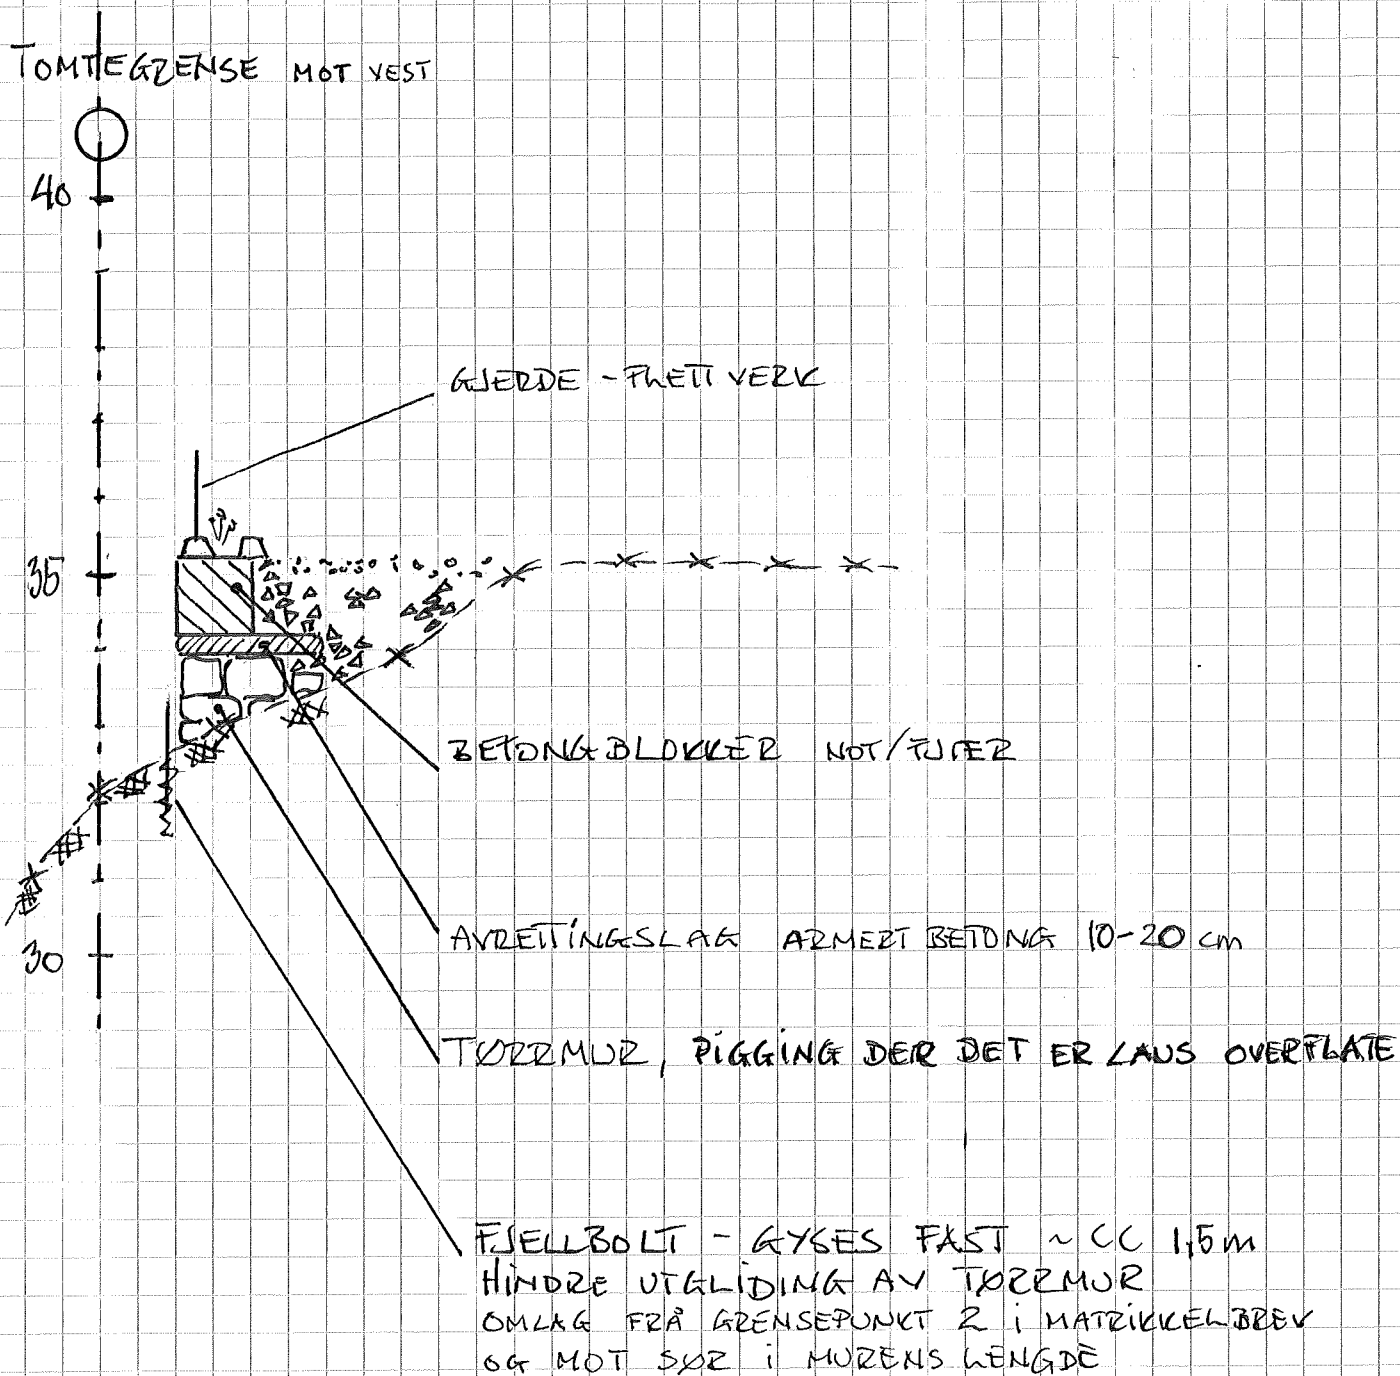 TOMTEGRENSE MOT VEST
40
GJERDE - FLETTVERK
35
BETONGBLOKKER NOT/FJÆR
AVRETTINGSLAG ARMERT BETONG 10-20 cm
30
TØRRMUR, PIGGING DER DET ER LAUS OVERFLATE
FJELLBOLT - GYSES FAST ~ CC 1,5m
HINDRE UTGLIDING AV TØRRMUR
OMLAG FRÅ GRENSEPUNKT 2 i MATRIKKELBREV
OG MOT SØR i MURENS LENGDE